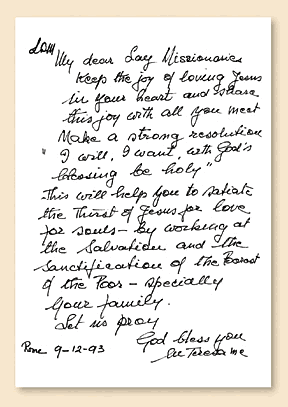 LDM
My dear Lay Missionaries
Keep the joy of loving Jesus
in your heart and share
this joy with all you meet
Make a strong resolution
"I will, I want, with God's
blessing be holy"
This will help you to satiate
the Thirst of Jesus for love
for souls – by working at
the Salvation and the
Sanctification of the Poorest
of the Poor – specially
your family.
Let us pray
God bless you
M Teresa mc
Rome 9-12-93